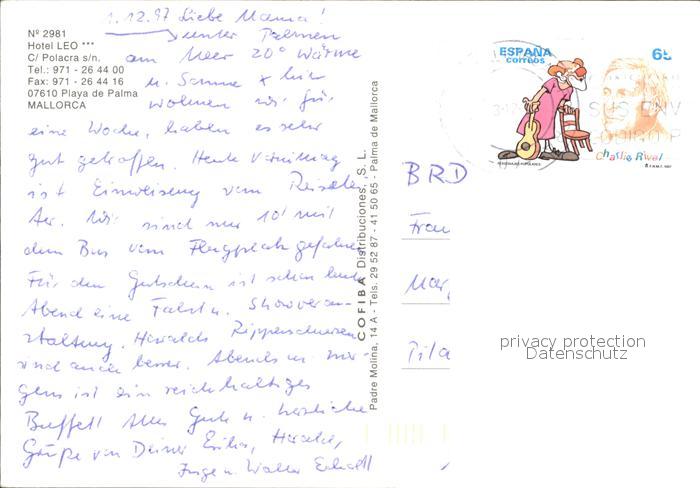 1.12.97 Liebe Mama!
unter Palmen
am Meer 20° Wärme
u. Sonne x hier
wohnen wir für
eine Woche, haben es sehr
gut getroffen. Heute Vormittag
ist Einweisung vom Reiselei
ter. Wir sind nur 10' mit
dem Bus vom Flugplatz gefahren
Für den Gutschein ist schon heute
Abend eine Fahrt u. Showveran-
staltung. Haralds Rippenschmerzen
sind auch besser. Abends u. mor-
gens ist ein reichhaltiges
Buffet! Alles Gute u. herzliche
Grüße von Deiner Erika, Harald,
Inge u. Walter
Nº 2981
Hotel LEO ***
C/ Polacra s/n.
Tel.: 971 - 26 44 00
Fax: 971 - 26 44 16
07610 Playa de Palma
MALLORCA
COFIBA Distribuciones, S. L.
Padre Molina, 14 A - Tels. 29 52 87 - 41 50 65 - Palma de Mallorca
ESPAÑA
correos
65
Charlie Rivel
BRD
Frau
privacy protection
Datenschutz